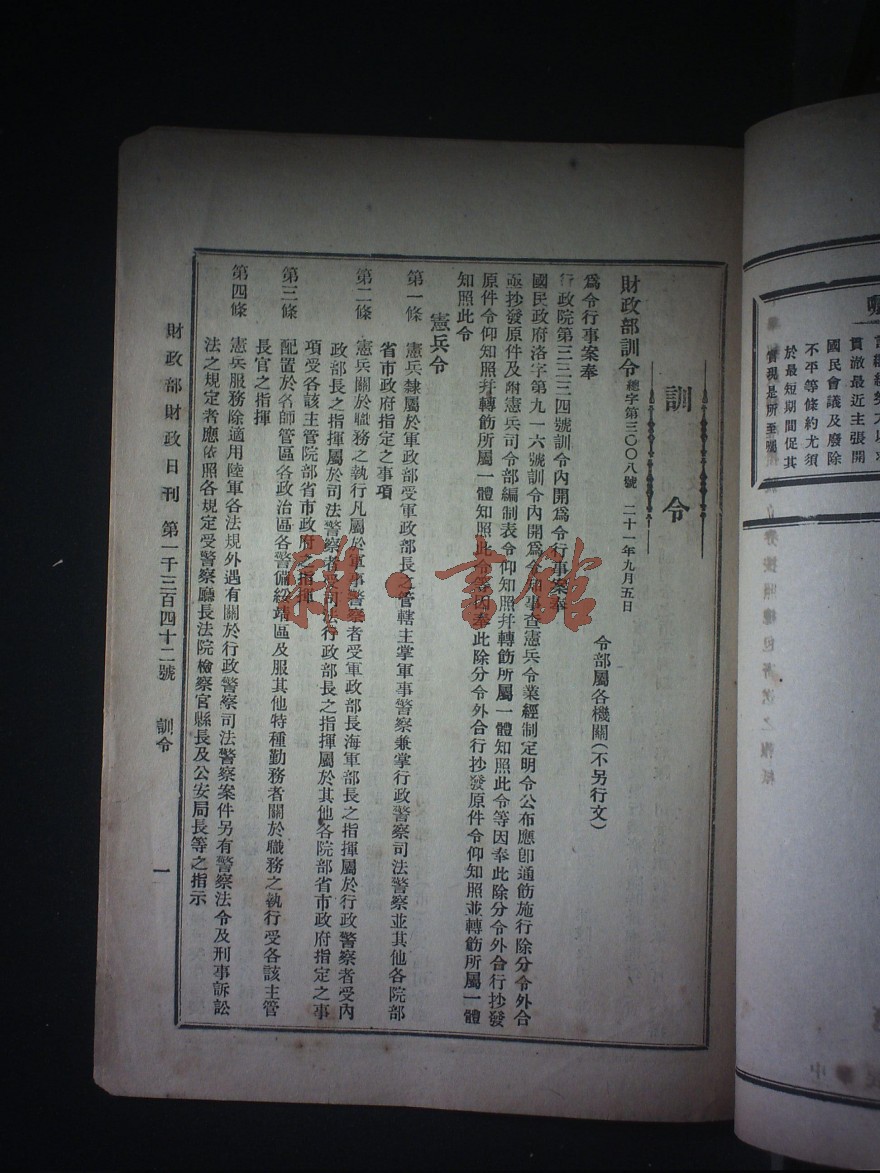 訓令
財政部訓令總字第三〇〇八號 二十一年九月五日
令部屬各機關(不另行文)
爲令行事案奉
行政院第三三三四號訓令內開爲令行事案奉
國民政府洛字第九一六號訓令內開爲令知事查憲兵令業經制定明令公布應卽通飭施行除分令外合
亟抄發原件及附憲兵司令部編制表令仰知照并轉飭所屬一體知照此令等因奉此除分令外合行抄發
原件令仰知照并轉飭所屬一體知照此令等因奉此除分令外合行抄發原件令仰知照並轉飭所屬一體
知照此令
憲兵令
第一條 憲兵隸屬於軍政部受軍政部長之管轄主掌軍事警察兼掌行政警察司法警察並其他各院部
省市政府指定之事項
第二條 憲兵關於職務之執行凡屬於軍事警察者受軍政部長海軍部長之指揮屬於行政警察者受內
政部長之指揮屬於司法警察者受司法行政部長之指揮屬於其他各院部省市政府指定之事
項受各該主管院部省市政府之指揮
第三條 配置於各師管區各政治區各警備綏靖區及服其他特種勤務者關於職務之執行受各該主管
長官之指揮
第四條 憲兵服務除適用陸軍各法規外遇有關於行政警察司法警察案件另有警察法令及刑事訴訟
法之規定者應依照各規定受警察廳長法院檢察官縣長及公安局長等之指示
財政部財政日刊 第一千三百四十二號 訓令 一
貫澈最近主張開
國民會議及廢除
不平等條約尤須
於最短期間促其
實現是所至囑
雜·書館